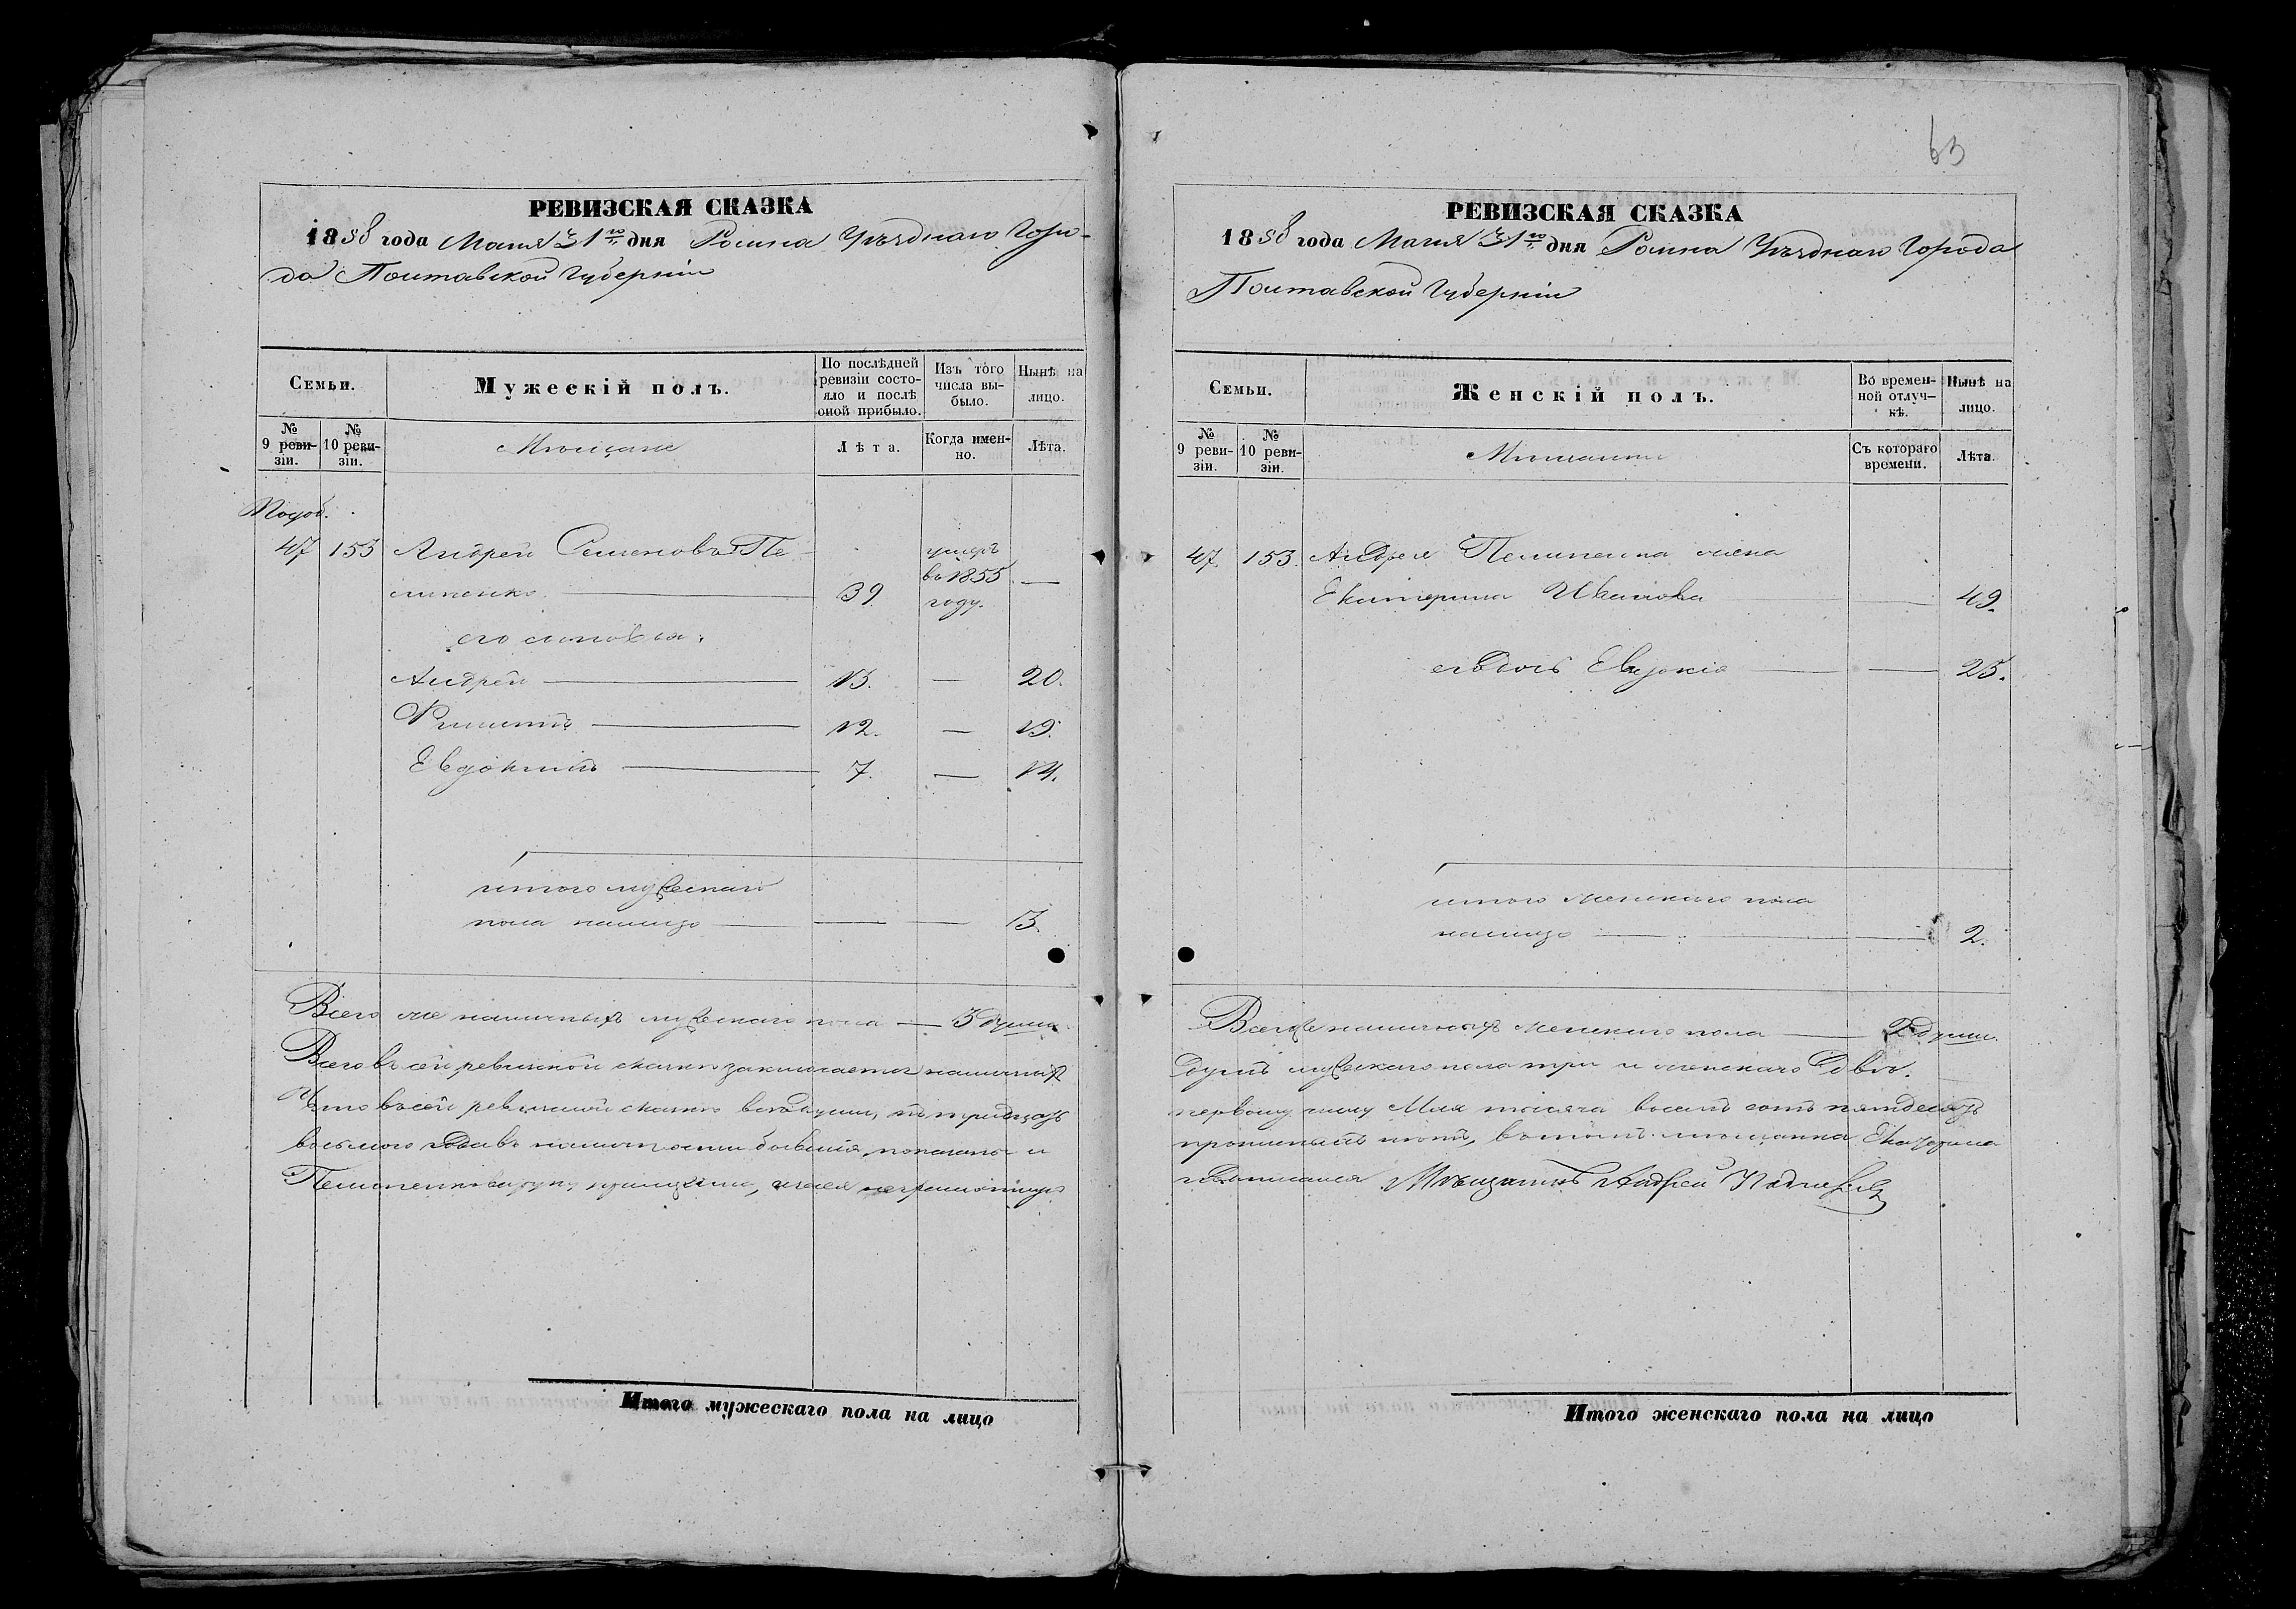 63
РЕВИЗСКАЯ СКАЗКА
1858 года Маія 31го дня Ромна Уѣзднаго Горо-
да Полтавской Губерніи
Семьи.
Мужескій полъ.
По послѣдней ревизіи состо-
яло и послѣ оной прибыло.
Изъ того числа вы-
было.
Нынѣ на лицо.
№ 9 реви-
зіи.
№ 10 реви-
зіи.
Мѣщане
Лѣта.
Когда имен-
но.
Лѣта.
47 153 Андрей Семеновъ Пе-
39 умеръ
въ 1855
году. —
его сыновья:
Андрей 13. — 20.
Филиппъ 12. — 19.
Евдокимъ 7. — 14.
итого мужескаго
пола налицо — — 3.
Всего же наличныхъ мужескаго пола — 3 души
Всего въ сей ревизской сказкѣ заключается наличныхъ
Что въ сей ревизской сказкѣ всѣ души, по тридцать
восьмого года въ наличности бывшія, показаны и
Итого мужескаго пола на лицо
РЕВИЗСКАЯ СКАЗКА
1858 года Маія 31го дня Ромна Уѣзднаго Города
Полтавской Губерніи
Семьи.
Женскій полъ.
Во времен-
ной отлуч-
кѣ.
Нынѣ на лицо.
№ 9 реви-
зіи.
№ 10 реви-
зіи.
Мѣщанки
Съ котораго времени.
Лѣта.
47. 153. Андрея жена
Екатерина Иванова — 49.
ея дочь Евдокія — 25.
итого женскаго пола
налицо — 2.
Всего же наличныхъ женскаго пола — 2 души.
Душъ мужескаго пола три и женскаго двѣ.
первому числу Мая тысяча восемь сотъ пятдесятъ
мѣщанка Екатерина
Мѣщанинъ Андрей
Итого женскаго пола на лицо